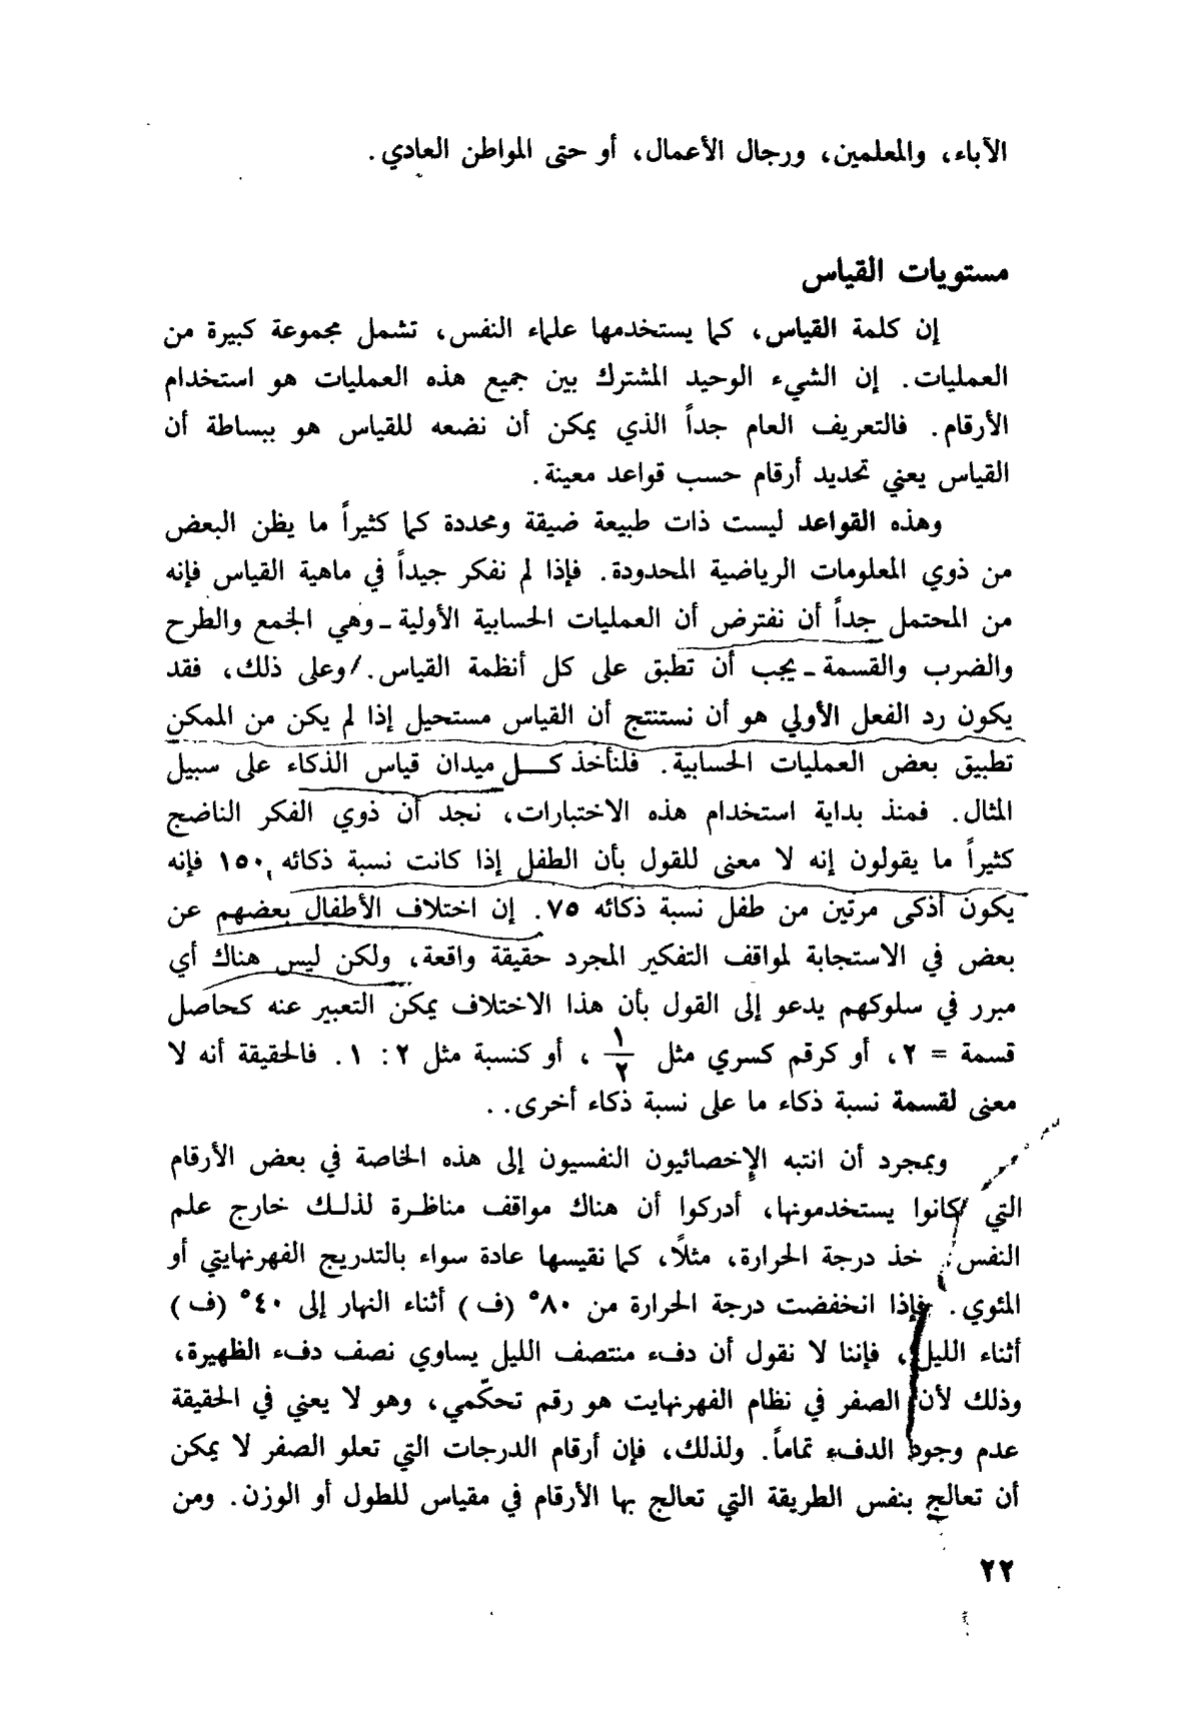 الآباء، والمعلمين، ورجال الأعمال، أو حتى المواطن العادي.
مستويات القياس
إن كلمة القياس، كما يستخدمها علماء النفس، تشمل مجموعة كبيرة من
العمليات. إن الشيء الوحيد المشترك بين جميع هذه العمليات هو استخدام
الأرقام. فالتعريف العام جداً الذي يمكن أن نضعه للقياس هو ببساطة أن
القياس يعني تحديد أرقام حسب قواعد معينة.
وهذه القواعد ليست ذات طبيعة ضيقة ومحددة كما كثيراً ما يظن البعض
من ذوي المعلومات الرياضية المحدودة. فإذا لم نفكر جيداً في ماهية القياس فإنه
من المحتمل جداً أن نفترض أن العمليات الحسابية الأولية ـ وهي الجمع والطرح
والضرب والقسمة ـ يجب أن تطبق على كل أنظمة القياس. / وعلى ذلك، فقد
يكون رد الفعل الأولي هو أن نستنتج أن القياس مستحيل إذا لم يكن من الممكن
تطبيق بعض العمليات الحسابية. فلنأخذ كـــل ميدان قياس الذكاء على سبيل
المثال. فمنذ بداية استخدام هذه الاختبارات، نجد أن ذوي الفكر الناضج
كثيراً ما يقولون إنه لا معنى للقول بأن الطفل إذا كانت نسبة ذكائه ١٥٠ فإنه
يكون أذكى مرتين من طفل نسبة ذكائه ٧٥. إن اختلاف الأطفال بعضهم عن
بعض في الاستجابة لمواقف التفكير المجرد حقيقة واقعة، ولكن ليس هناك أي
مبرر في سلوكهم يدعو إلى القول بأن هذا الاختلاف يمكن التعبير عنه كحاصل
قسمة = ٢، أو كرقم كسري مثل ١/٢ ، أو كنسبة مثل ٢ : ١. فالحقيقة أنه لا
معنى لقسمة نسبة ذكاء ما على نسبة ذكاء أخرى. .
وبمجرد أن انتبه الإخصائيون النفسيون إلى هذه الخاصة في بعض الأرقام
التي كانوا يستخدمونها، أدركوا أن هناك مواقف مناظرة لذلك خارج علم
النفس. خذ درجة الحرارة، مثلاً، كما نقيسها عادة سواء بالتدريج الفهرنهايتي أو
المئوي. فإذا انخفضت درجة الحرارة من ٨٠° (ف) أثناء النهار إلى ٤٠° (ف)
أثناء الليل، فإننا لا نقول أن دفء منتصف الليل يساوي نصف دفء الظهيرة،
وذلك لأن الصفر في نظام الفهرنهايت هو رقم تحكّمي، وهو لا يعني في الحقيقة
عدم وجود الدفء تماماً. ولذلك، فإن أرقام الدرجات التي تعلو الصفر لا يمكن
أن تعالج بنفس الطريقة التي تعالج بها الأرقام في مقياس للطول أو الوزن. ومن
٢٢